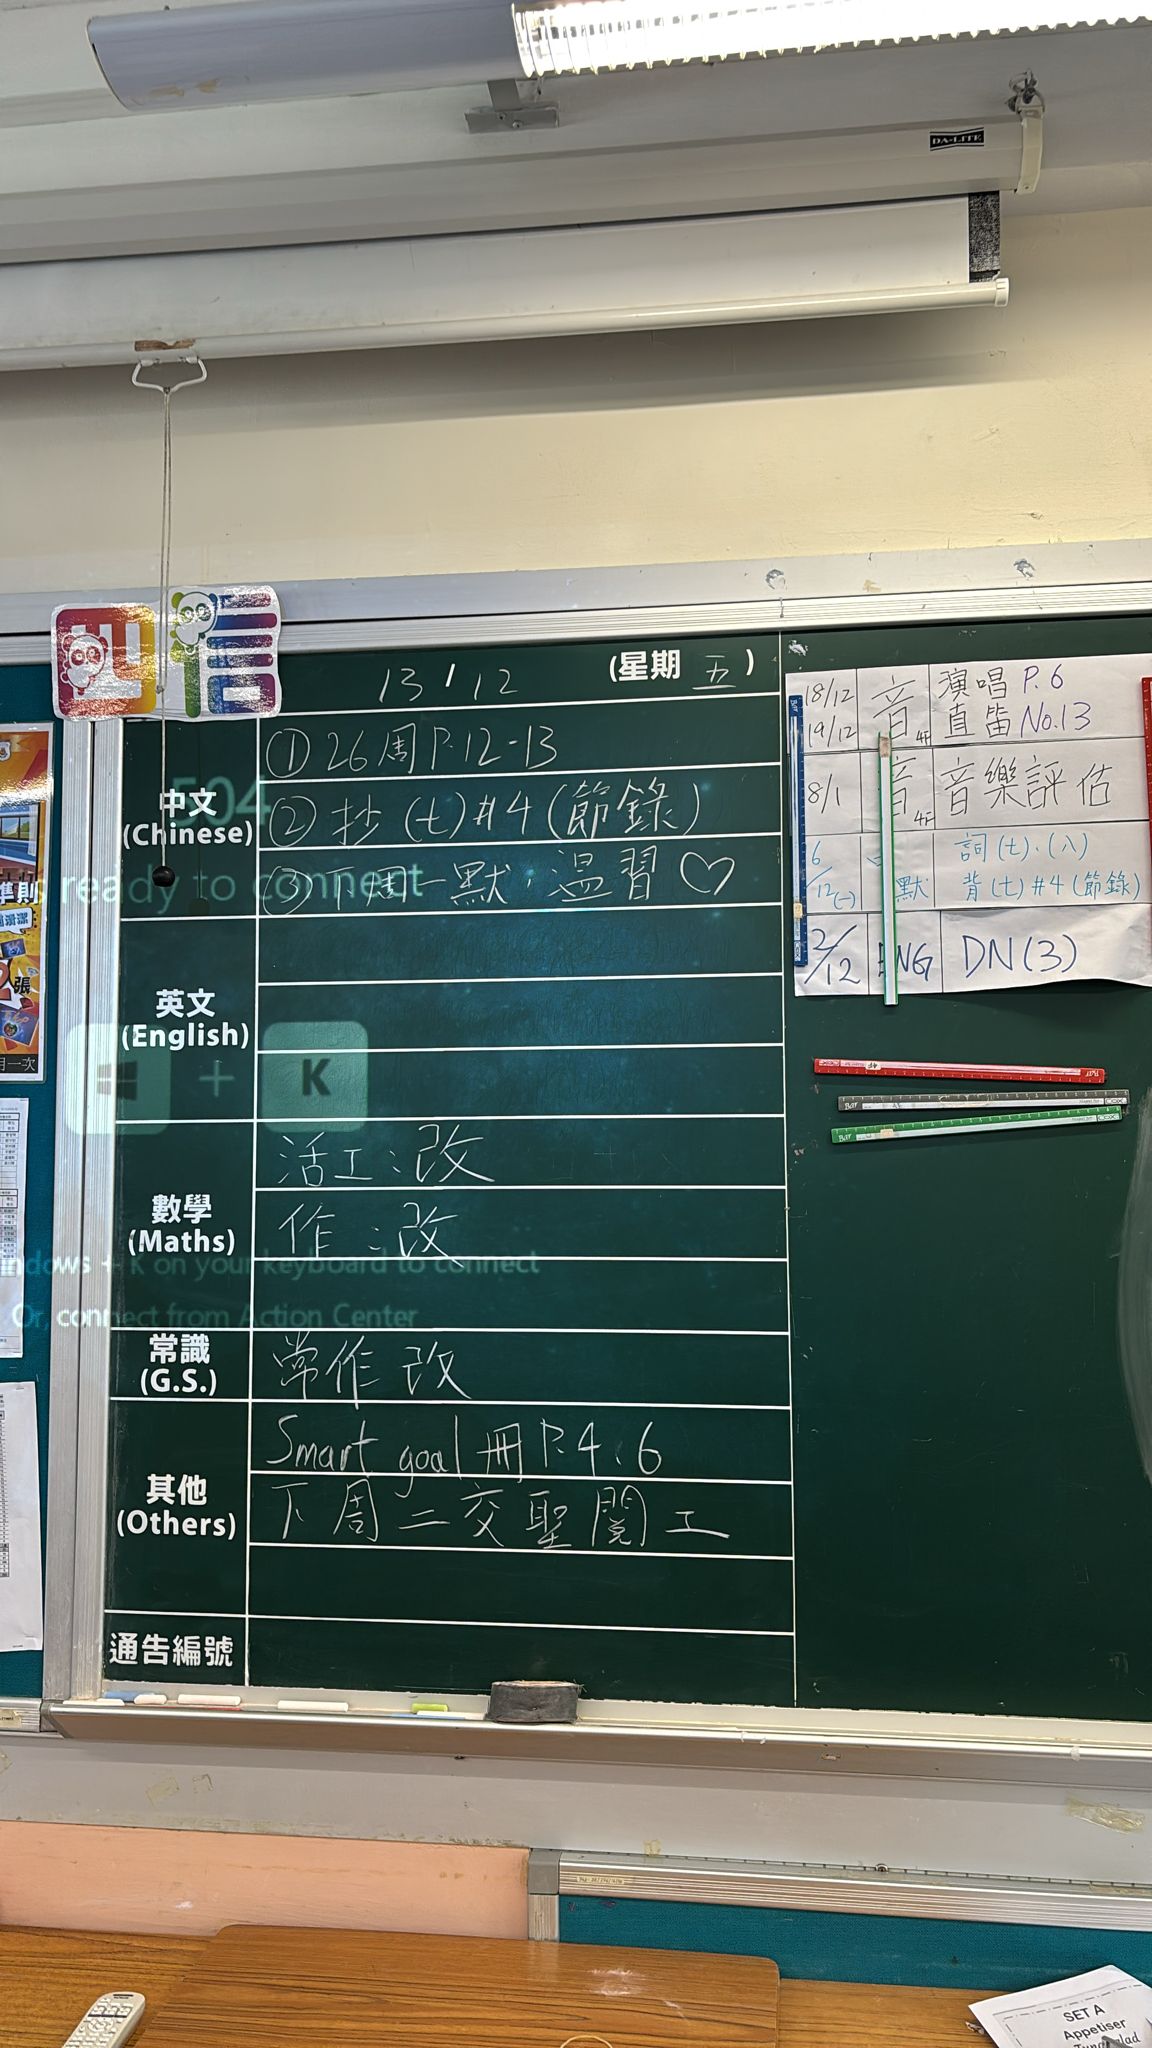 DA-LITE
四信
13/12 (星期 五)
中文
(Chinese)
① 26周P.12-13
② 抄(七)#4(節錄)
③ 下周一默,温習♡
504
ready to connect
英文
(English)
+ K
數學
(Maths)
活工:改
作:改
Windows + K on your keyboard to connect
Or, connect from Action Center
常識
(G.S.)
常作 改
其他
(Others)
Smart goal 冊 P.4、6
下周二交聖閱工
通告編號
18/12 音 4F 演唱 P.6
19/12 直笛 No.13
8/1 音 4F 音樂評估
詞(七)、(八)
默 背(七)#4(節錄)
ENG DN(3)
準則
張
月一次
SET A
Appetiser